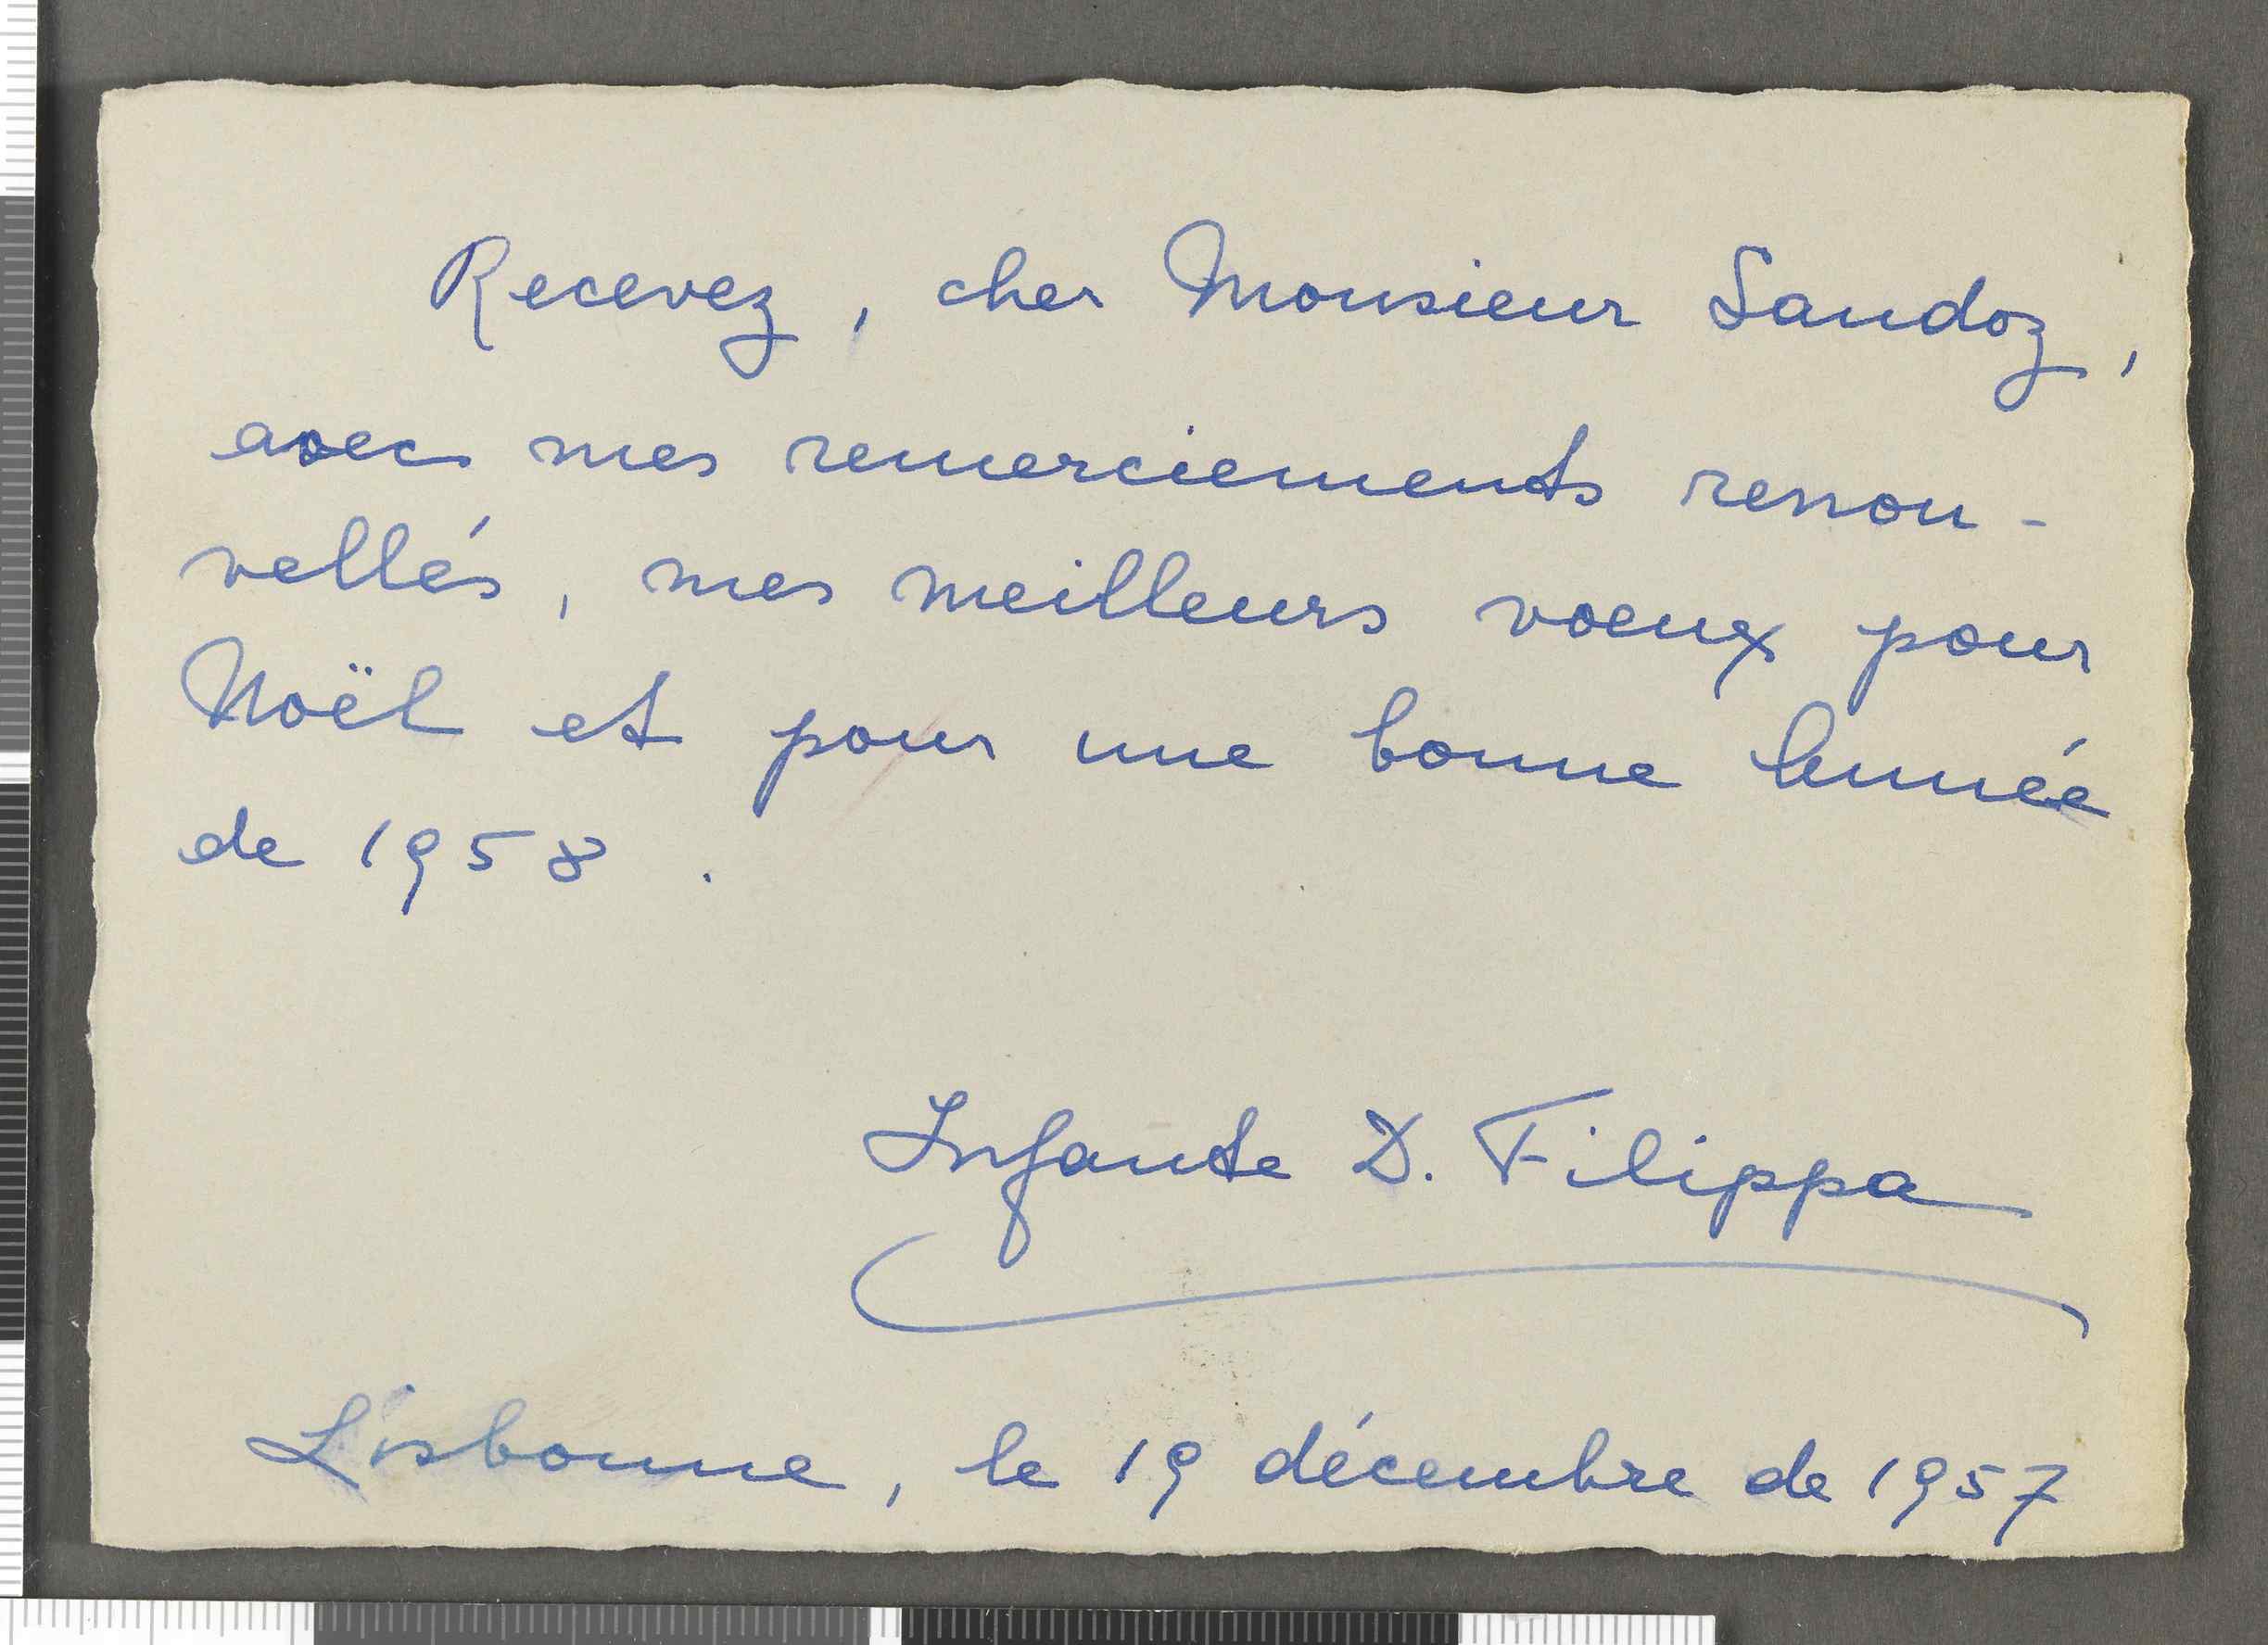 Recevez, cher Monsieur Sandoz,
avec mes remerciements renou-
vellés, mes meilleurs voeux pour
Noël et pour une bonne Année
de 1958.
Infante D. Filippa
Lisbonne, le 19 décembre de 1957